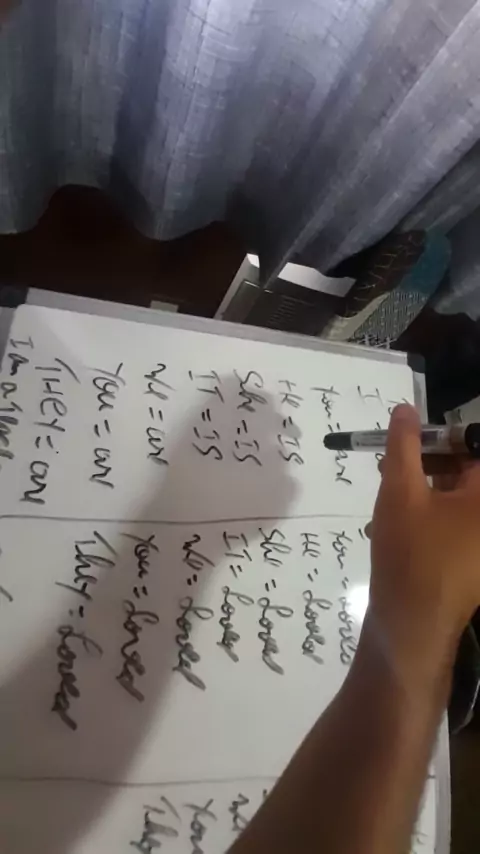 I
You = are
He = IS
She = IS
IT = IS
We = are
You = are
THEY = are
I am a
You =
He = Loved
She = Loved
IT = Loved
We = Loved
You = Loved
They = Loved
We
You
They